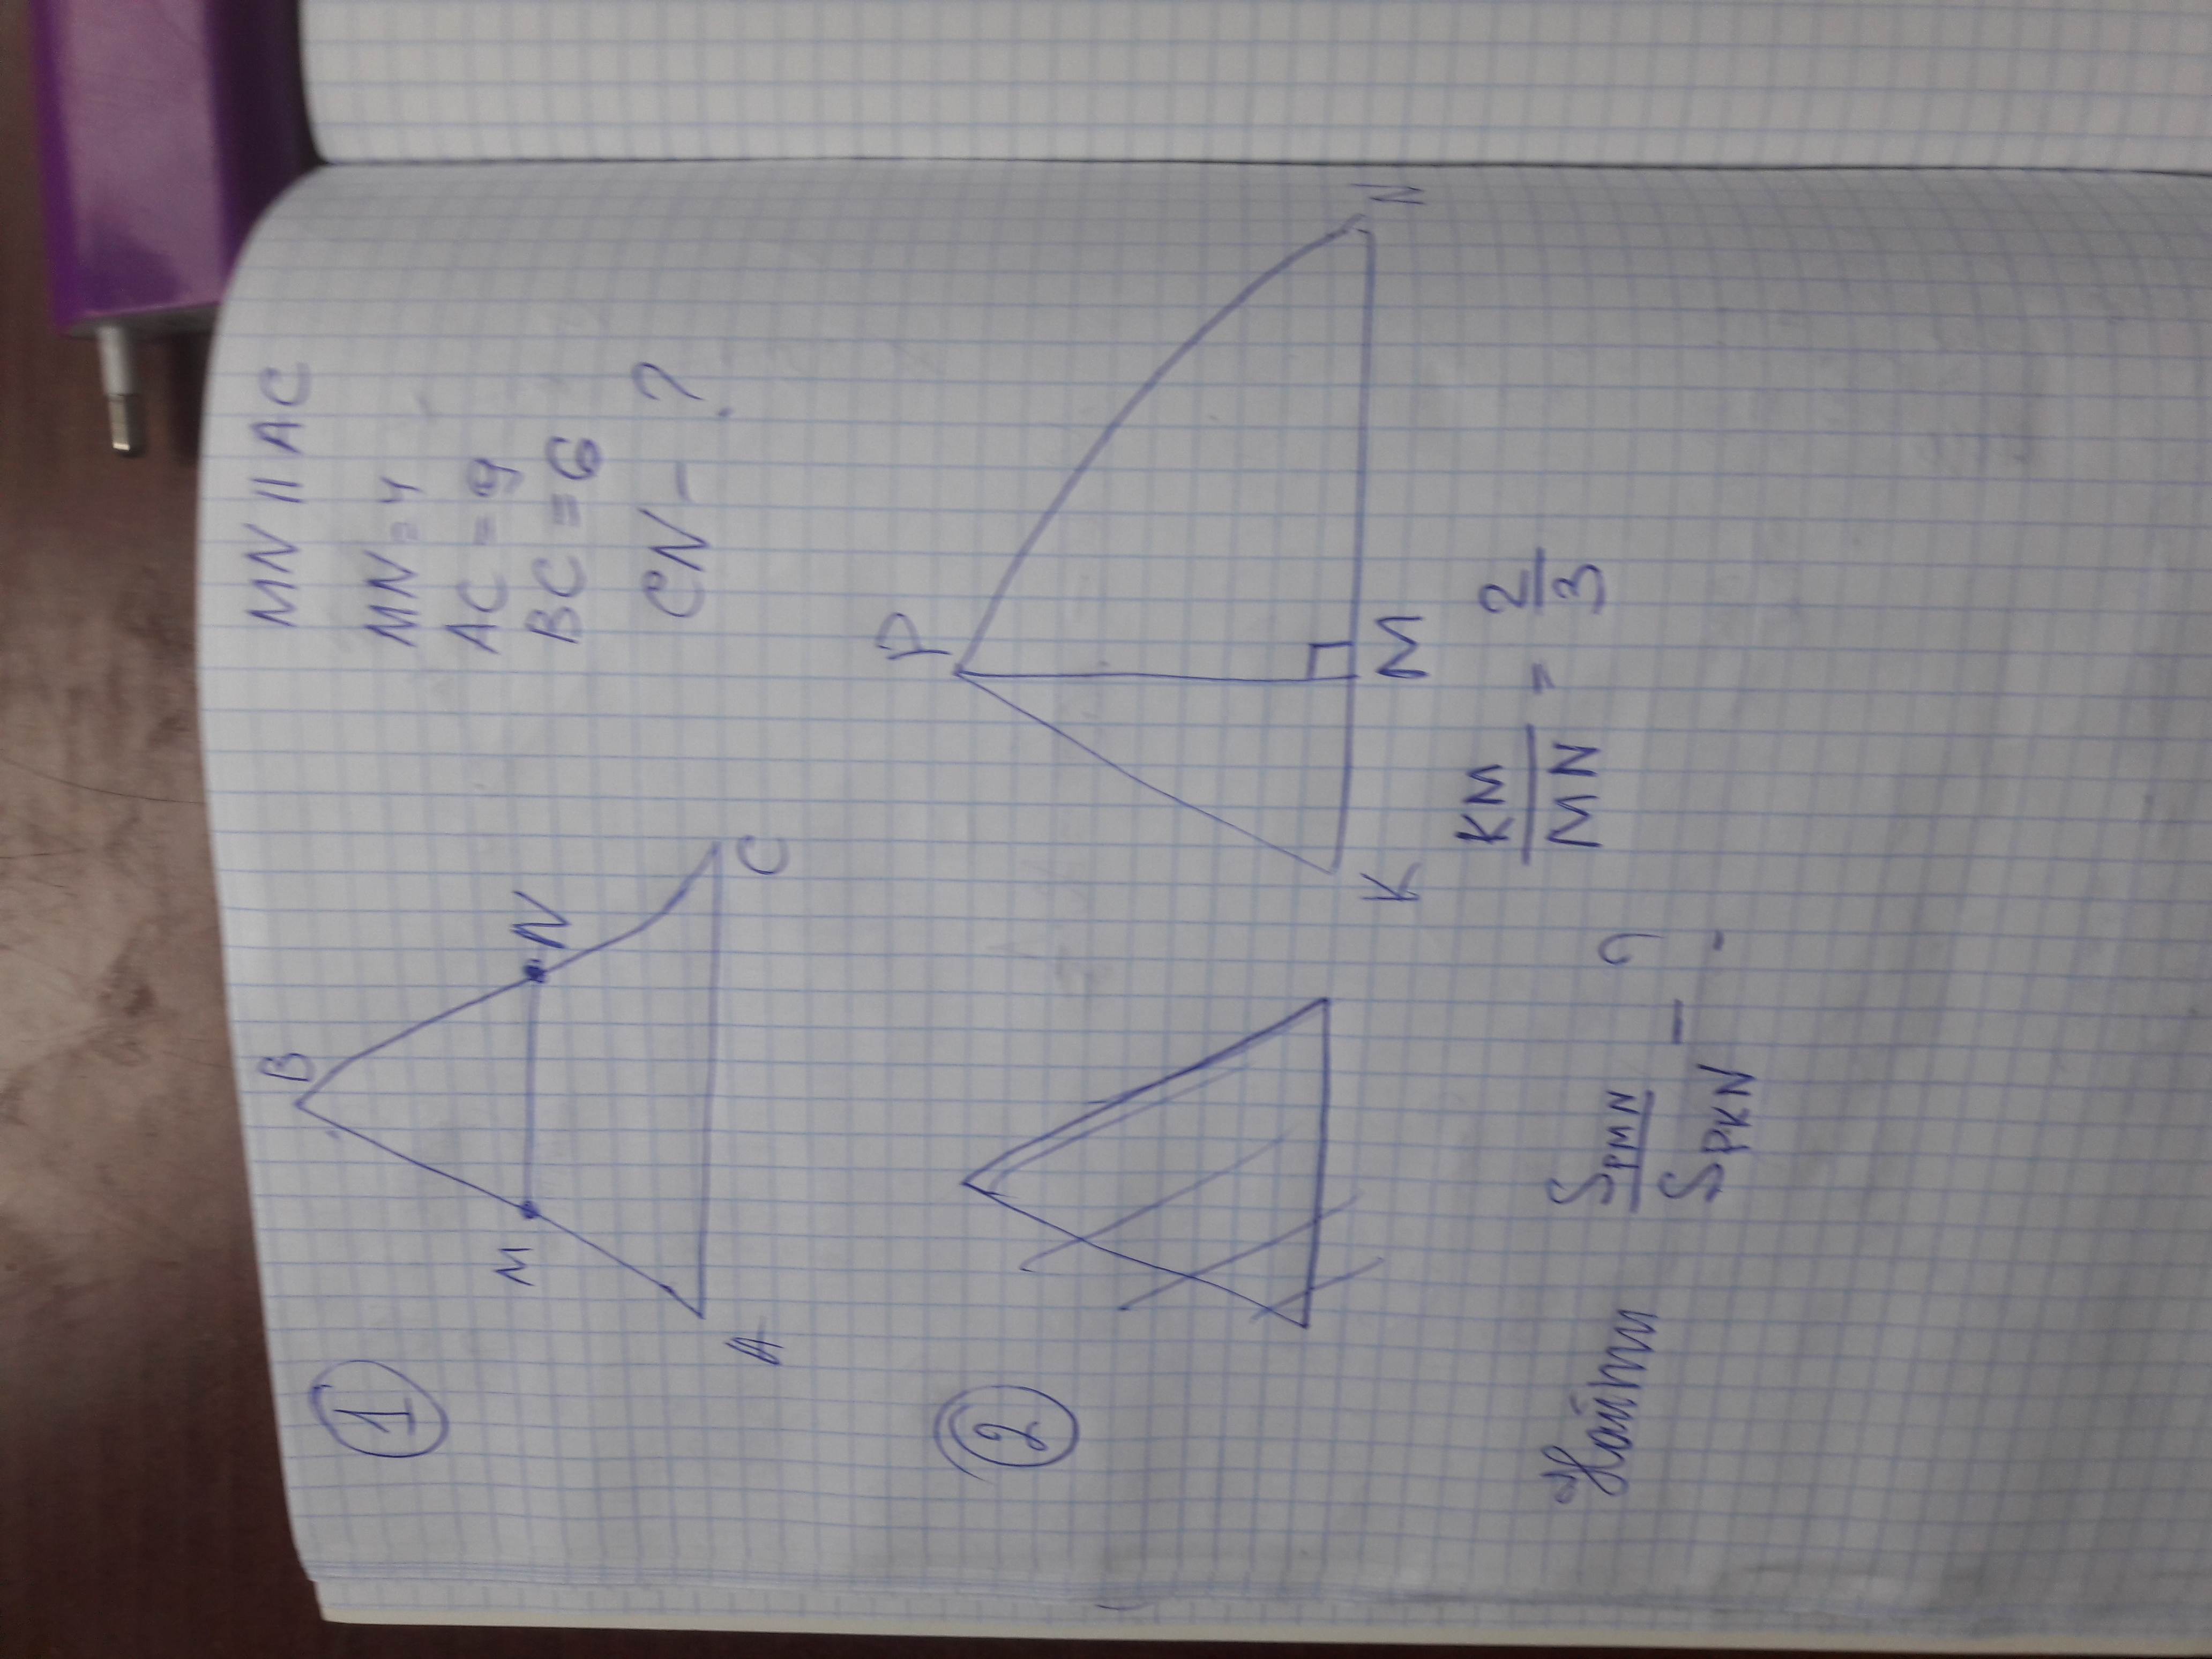 1
B
M
N
A
C
MN || AC
MN = 4
AC = 9
BC = 6
CN - ?
2
P
K
M
N
KM/MN = 2/3
Найти SPMN/SPKN - ?